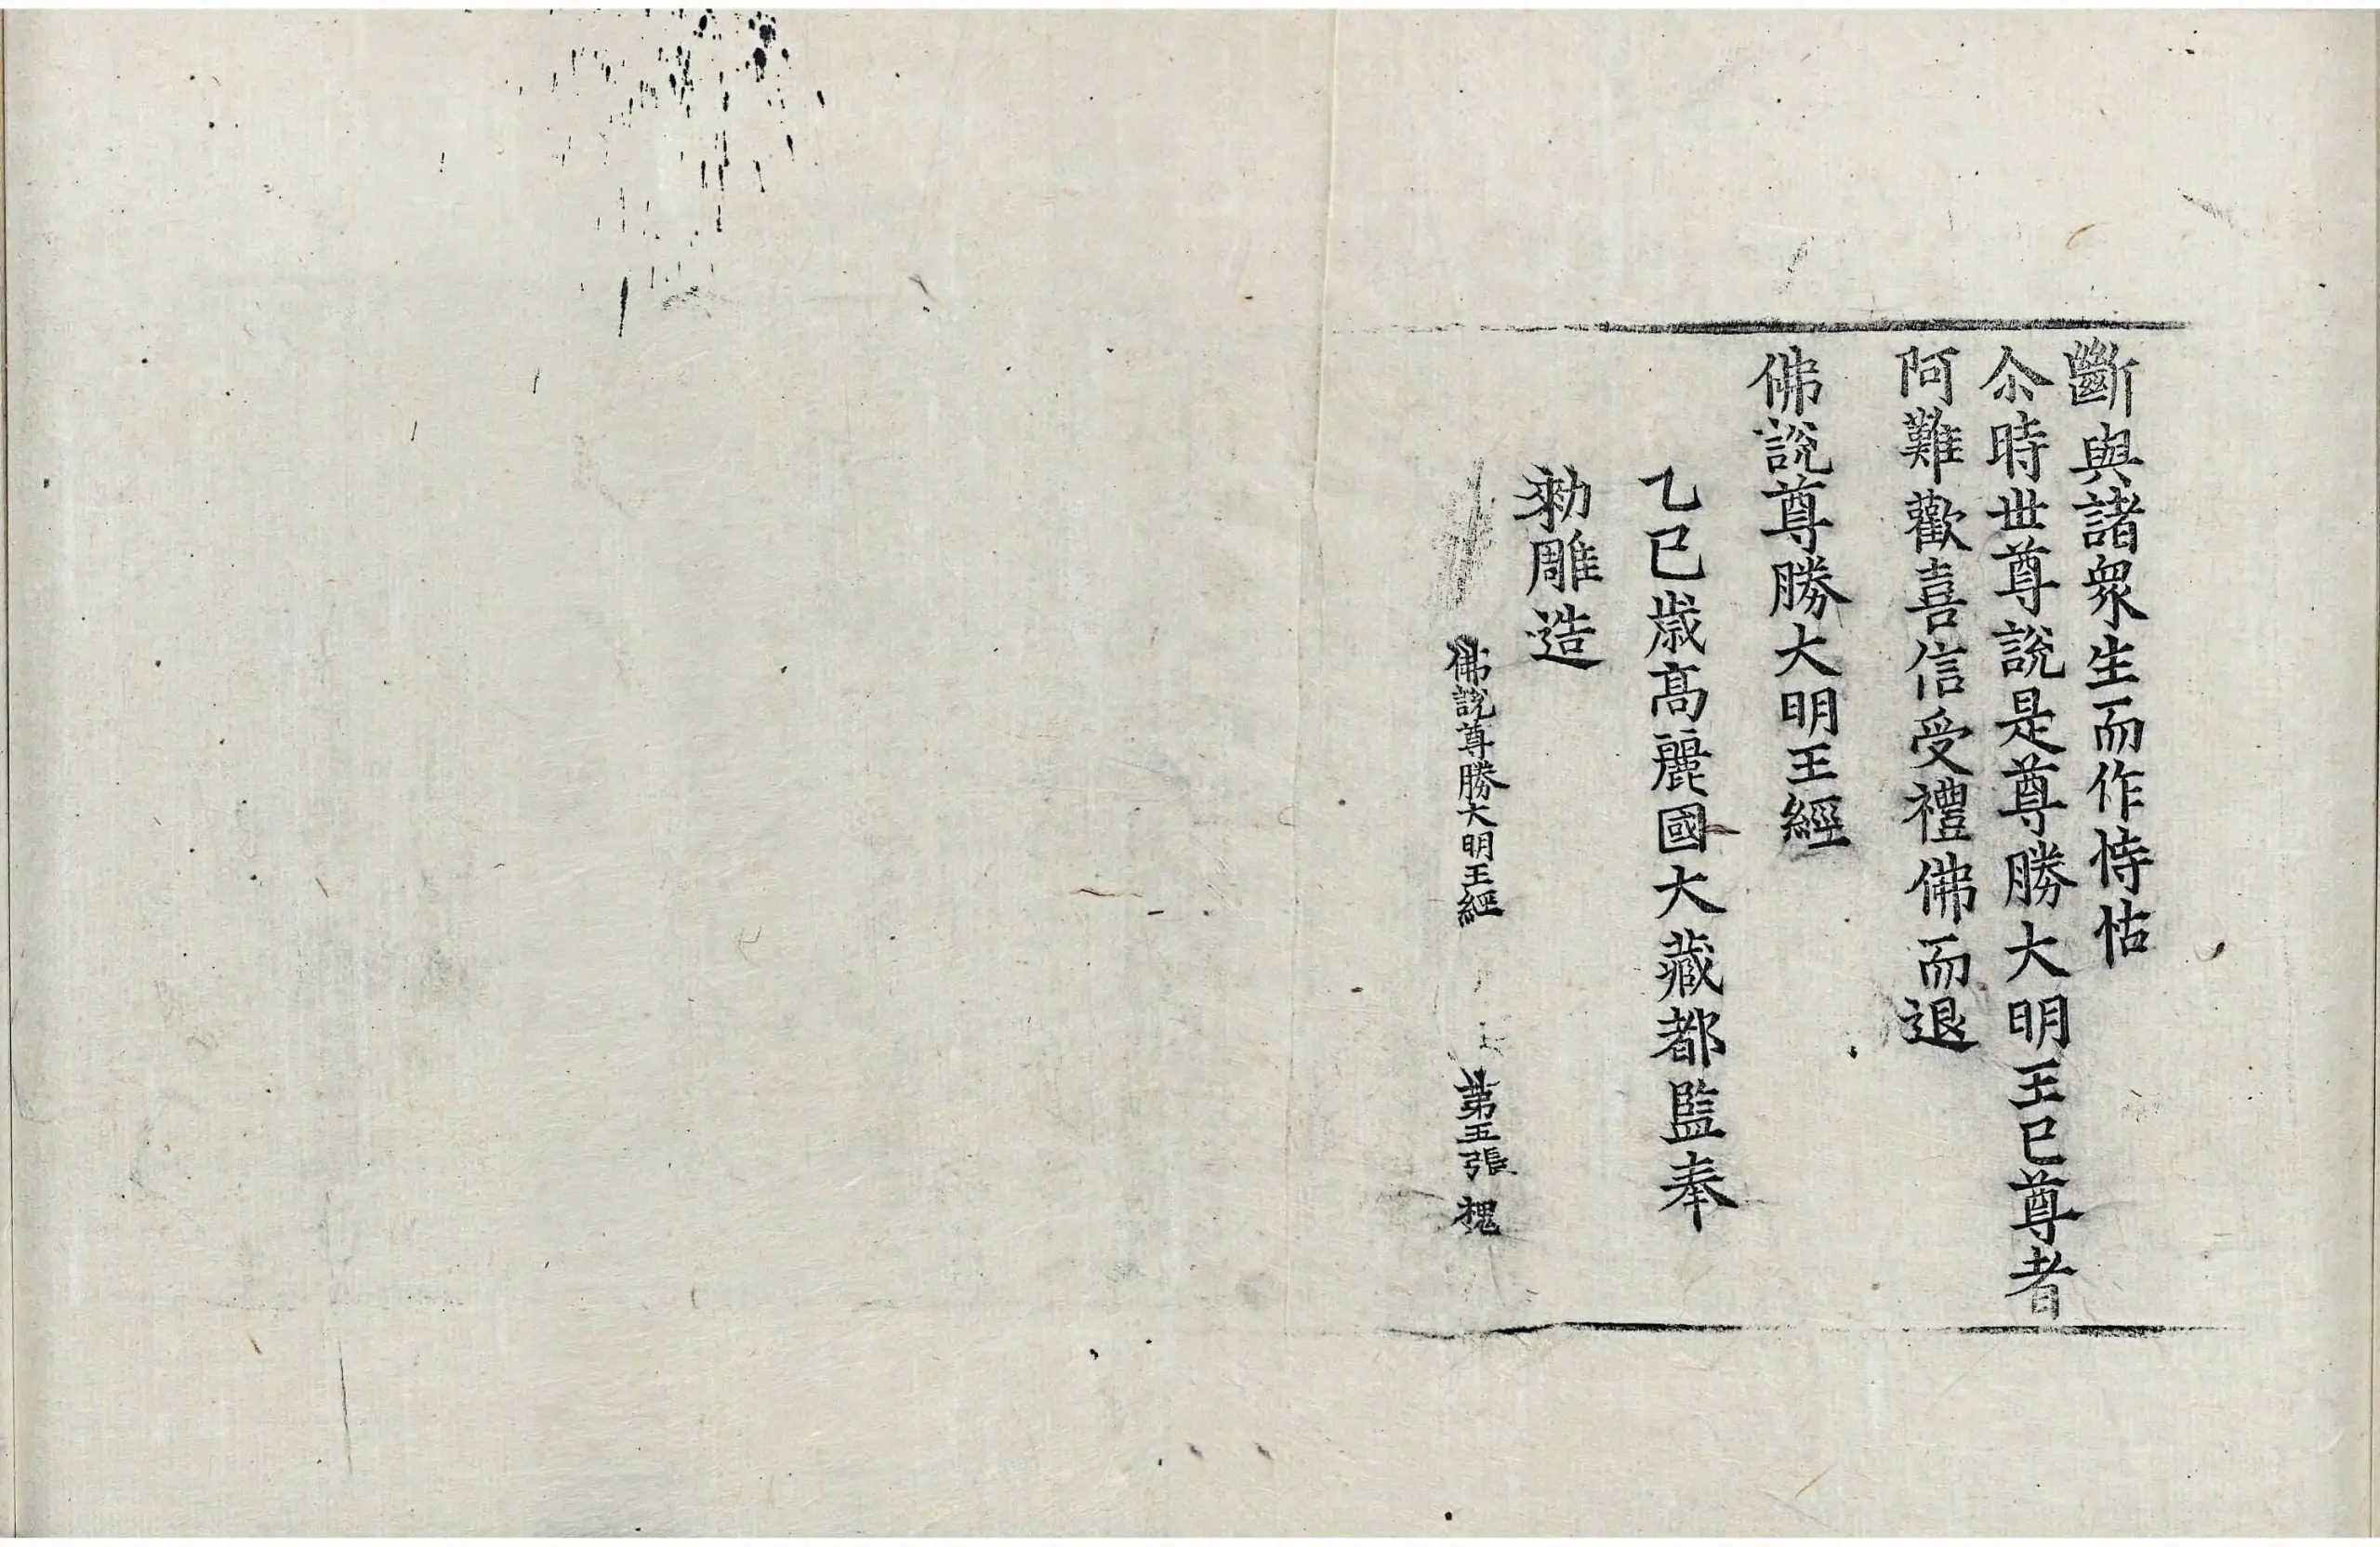 斷與諸衆生而作恃怙
尒時世尊說是尊勝大明王已尊者
阿難歡喜信受禮佛而退
佛說尊勝大明王經
乙巳歲高麗國大藏都監奉
勅雕造
佛說尊勝大明王經 第五張 槐